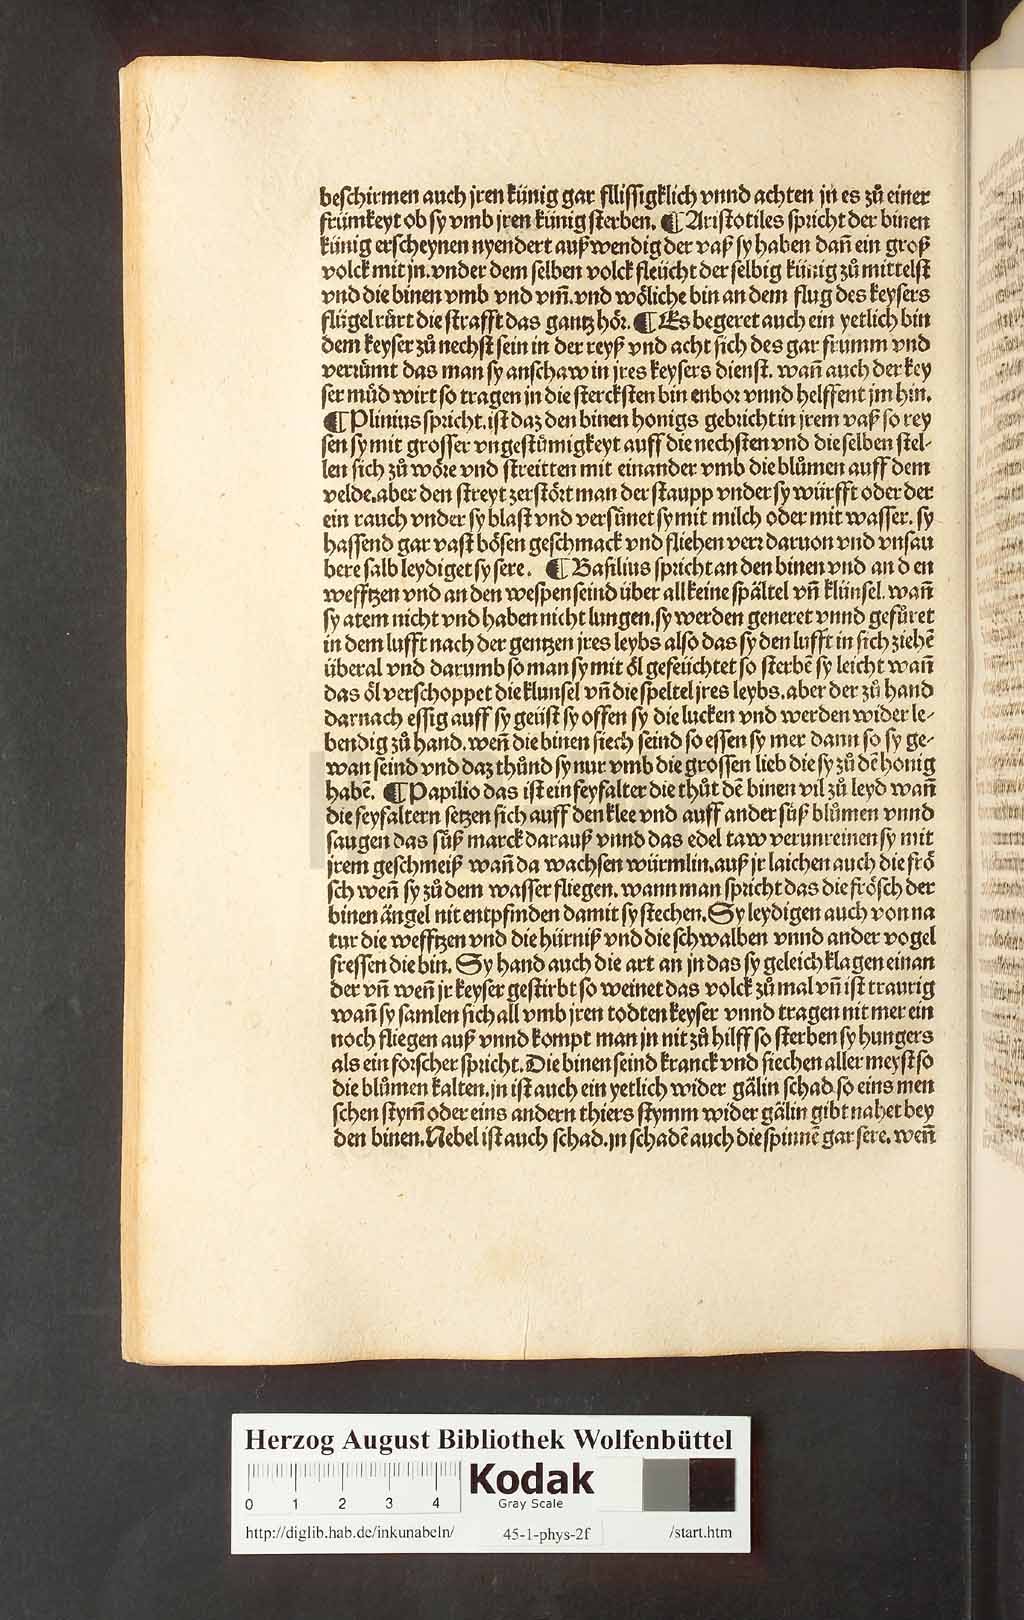 beschirmen auch jren künig gar fllissigklich vnnd achten jn es zů einer
frümkeyt ob sy vmb jren künig sterben. ¶ Aristotiles spricht der binen
künig erscheynen nyendert außwendig der vaß sy haben dañ ein groß
volck mit jn. vnder dem selben volck fleücht der selbig künig zů mittelst
vnd die binen vmb vnd vm̃. vnd wöliche bin an dem flug des keysers
flügel růrt die strafft das gantz hör. ¶ Es begeret auch ein yetlich bin
dem keyser zů nechst sein in der reyß vnd acht sich des gar frumm vnd
verrůmt das man sy anschaw in jres keysers dienst. wañ auch der key
ser můd wirt so tragen in die stercksten bin enbor vnnd helffent jm hin.
¶ Plinius spricht. ist daz den binen honigs gebricht in jrem vaß so rey
sen sy mit grosser vngestümigkeyt auff die nechsten vnd die selben stel-
len sich zů wöre vnd streitten mit einander vmb die blůmen auff dem
velde. aber den streyt zerstört man der staupp vnder sy würfft oder der
ein rauch vnder sy blast vnd versünet sy mit milch oder mit wasser. sy
hassend gar vast bösen geschmack vnd fliehen verr daruon vnd vnsau
bere salb leydiget sy sere. ¶ Basilius spricht an den binen vnd an d en
wefftzen vnd an den wespen seind über all keine spältel vñ klünsel. wañ
sy atem nicht vnd haben nicht lungen. sy werden generet vnnd gefůret
in dem lufft nach der gentzen jres leybs also das sy den lufft in sich ziehẽ
überal vnd darumb so man sy mit öl gefeüchtet so sterbẽ sy leicht wañ
das öl verschoppet die klunsel vñ die speltel jres leybs. aber der zů hand
darnach essig auff sy geüst sy offen sy die lucken vnd werden wider le-
bendig zů hand. weñ die binen siech seind so essen sy mer dann so sy ge-
wan seind vnd daz thůnd sy nur vmb die grossen lieb die sy zů dẽ honig
habẽ. ¶ Papilio das ist ein feyfalter die thůt dẽ binen vil zů leyd wañ
die feyfaltern setzen sich auff den klee vnd auff ander süß blůmen vnnd
saugen das süß marck darauß vnnd das edel taw verunreinen sy mit
jrem geschmeiß wañ da wachsen würmlin. auß jr laichen auch die frö
sch weñ sy zů dem wasser fliegen. wann man spricht das die frösch der
binen ängel nit entpfinden damit sy stechen. Sy leydigen auch von na
tur die wefftzen vnd die hürniß vnd die schwalben vnnd ander vogel
fressen die bin. Sy hand auch die art an jn das sy geleich klagen einan
der vñ weñ jr keyser gestirbt so weinet das volck zů mal vñ ist traurig
wañ sy samlen sich all vmb jren todten keyser vnnd tragen nit mer ein
noch fliegen auß vnnd kompt man jn nit zů hilff so sterben sy hungers
als ein forscher spricht. Die binen seind kranck vnd siechen aller meyst so
die blůmen kalten. jn ist auch ein yetlich wider gälin schad. so eins men
schen stym̃ oder eins andern thiers stymm wider gälin gibt nahet bey
den binen. Nebel ist auch schad. jn schadẽ auch die spinnẽ gar sere. weñ
Herzog August Bibliothek Wolfenbüttel
0 1 2 3 4
Kodak
Gray Scale
http://diglib.hab.de/inkunabeln/ 45-1-phys-2f /start.htm